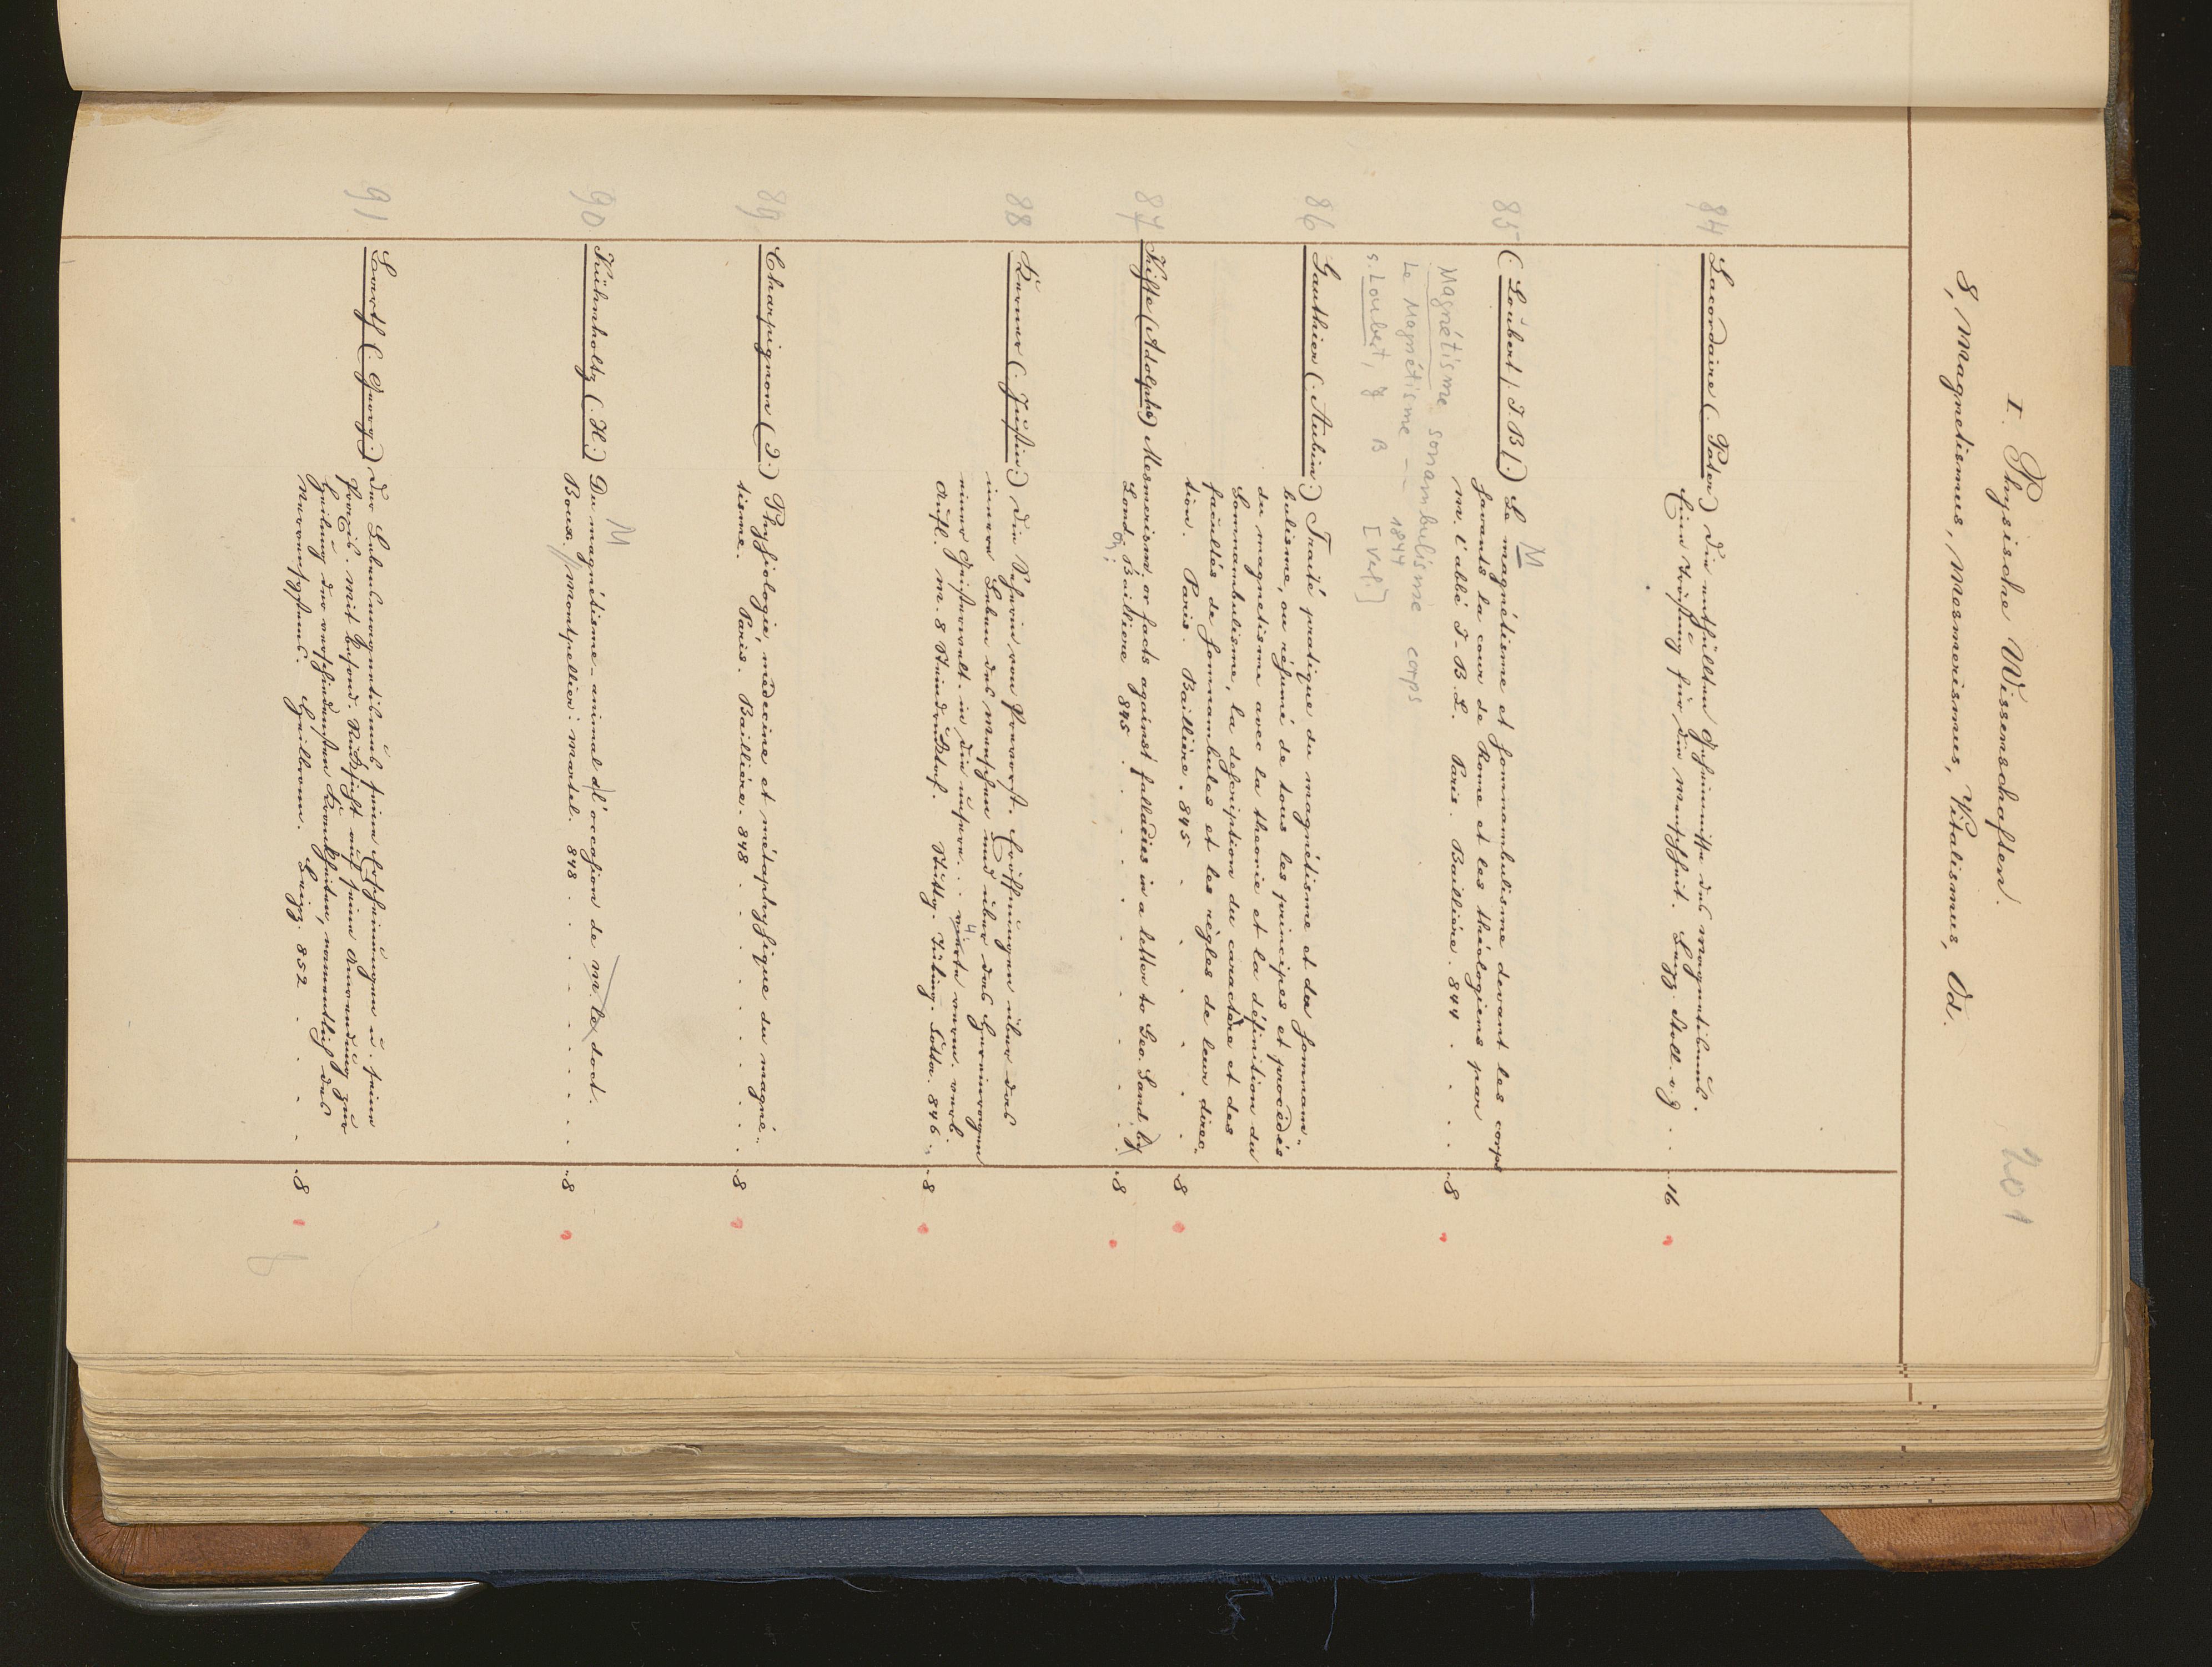 201
I. Physische Wissenschaften.
8, Magnetismus, Mesmerismus, Vitalismus, Od.
84 Lacordaire (Pater) Die enthüllten Geheimnisse des Magnetismus.
Eine Tröstung für die Menschheit. Leipz. Stoll. s. j. . . 16
85 (Loubert, J. B.) Le magnétisme et somnambulisme devant les corps
M
savants la cour de Rome et les théologiens par
M. l'abbé J-B. L. Paris. Baillière. 844 . . . 8
Magnétisme sonambulisme corps
Le Magnétisme — 1844
s. Loubert, J B [Verf.]
86 Gauthier (Aubin) Traité pratique du magnétisme et du somnam-
bulisme, ou résumé de tous les principes et procédés
du magnetisme avec la theorie et la définition du
Somnambulisme, la description du caractère et des
facultés de somnambules et les règles de leur direc-
tion. Paris. Baillière. 845 . . . . 8
87 Kiste (Adolphe) Mesmerism. or facts against fallacies in a letter to Geo. Sand. by
Lond. Bailliere 845 . . . . . 8
on;
88 Kerner (Justin) Die Seherin von Prevorst. Eröffnungen über das
innere Leben des Menschen und über das Hereinragen
einer Geisterwelt. in die unsere. . . vierte verm. verb.
4.
Aufl. M. 8 Steindrucktaf. Stuttg. Tübing. Cotta. 846 . . 8
89 Charpignon (J.) Physiologie, médecine et métaphysique du magné-
tisme. Paris. Baillière. 848 . . . . . 8
90 Kühnholtz (H.) Du magnétisme-animal d l'occasion de M. le doct.
M
Boux. // Montpellier: Martel. 848 . . . . . 8
91 Barth (Georg.) Der Lebensmagnetismus seine Erscheinungen u. seine
Praxis. Mit besond. Rücksicht auf seine Anwendung zur
Heilung der verschiedensten Krankheiten, namentlich des
Nervensystems. Heilbronn. Leipz. 852 . . . 8